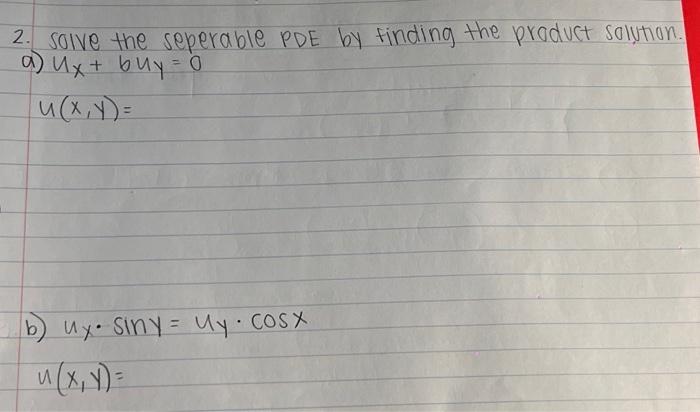 2. solve the seperable PDE by finding the product solution.
a) ux + buy = 0
u(x,y)=
b) ux · siny = uy · cosx
u(x,y)=